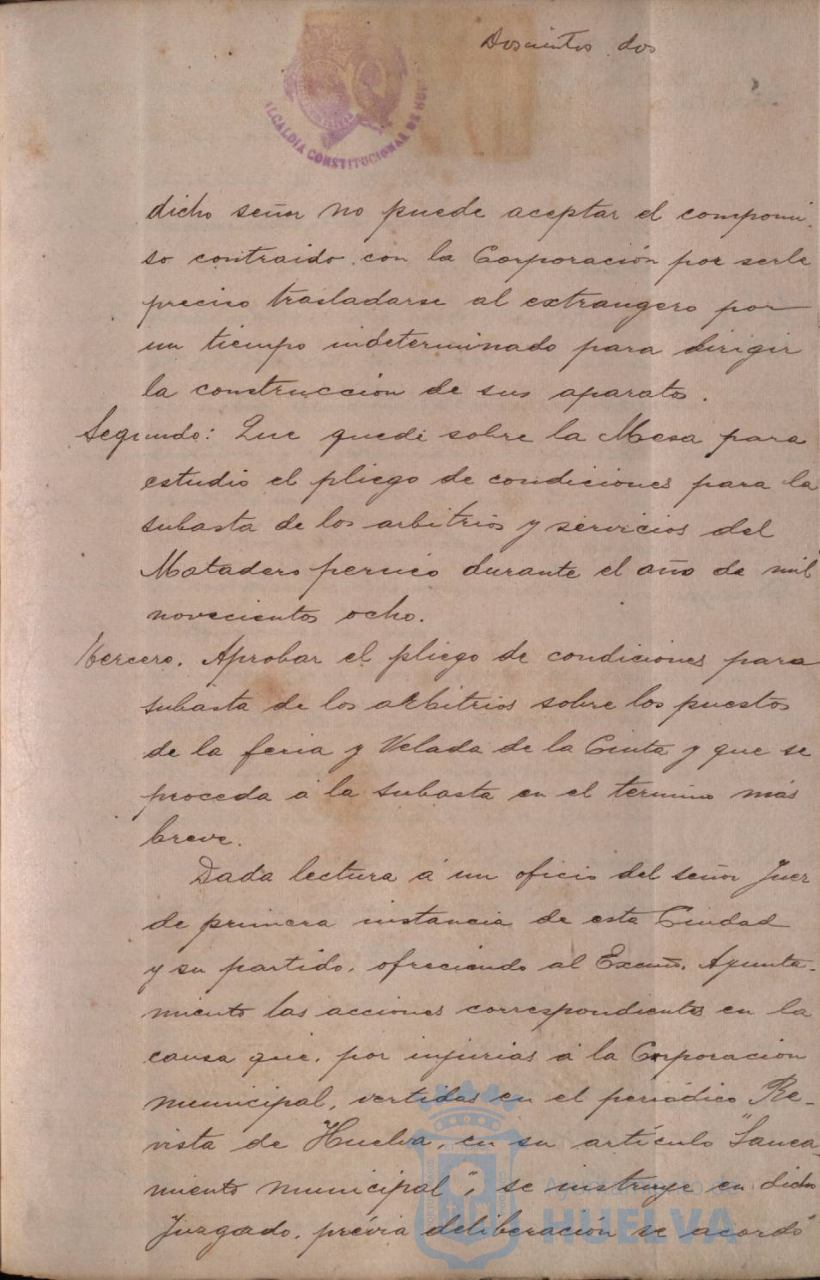 Doscientos dos
ALCALDIA CONSTITUCIONAL DE HUE
dicho señor no puede aceptar el compromi-
so contraido con la Corporación por serle
preciso trasladarse al extrangero por
un tiempo indeterminado para dirigir
la construccion de sus aparatos.
Segundo: Que quede sobre la Mesa para
estudio el pliego de condiciones para la
subasta de los arbitrios y servicios del
Matadero pernico durante el año de mil
novecientos ocho.
Tercero. Aprobar el pliego de condiciones para
subasta de los arbitrios sobre los puestos
de la feria y Velada de la Cinta y que se
proceda á la subasta en el termino más
breve.
Dada lectura á un oficio del señor Juez
de primera instancia de esta Ciudad
y su partido, ofreciendo al Excmo. Ayunta-
miento las acciones correspondientes en la
causa que, por injurias á la Corporacion
municipal, vertidas en el periódico Re-
vista de Huelva, en su artículo "Sanea-
miento municipal", se instruye en dicho
Juzgado, prévia deliberación se acordó
Ayuntamiento de
HUELVA